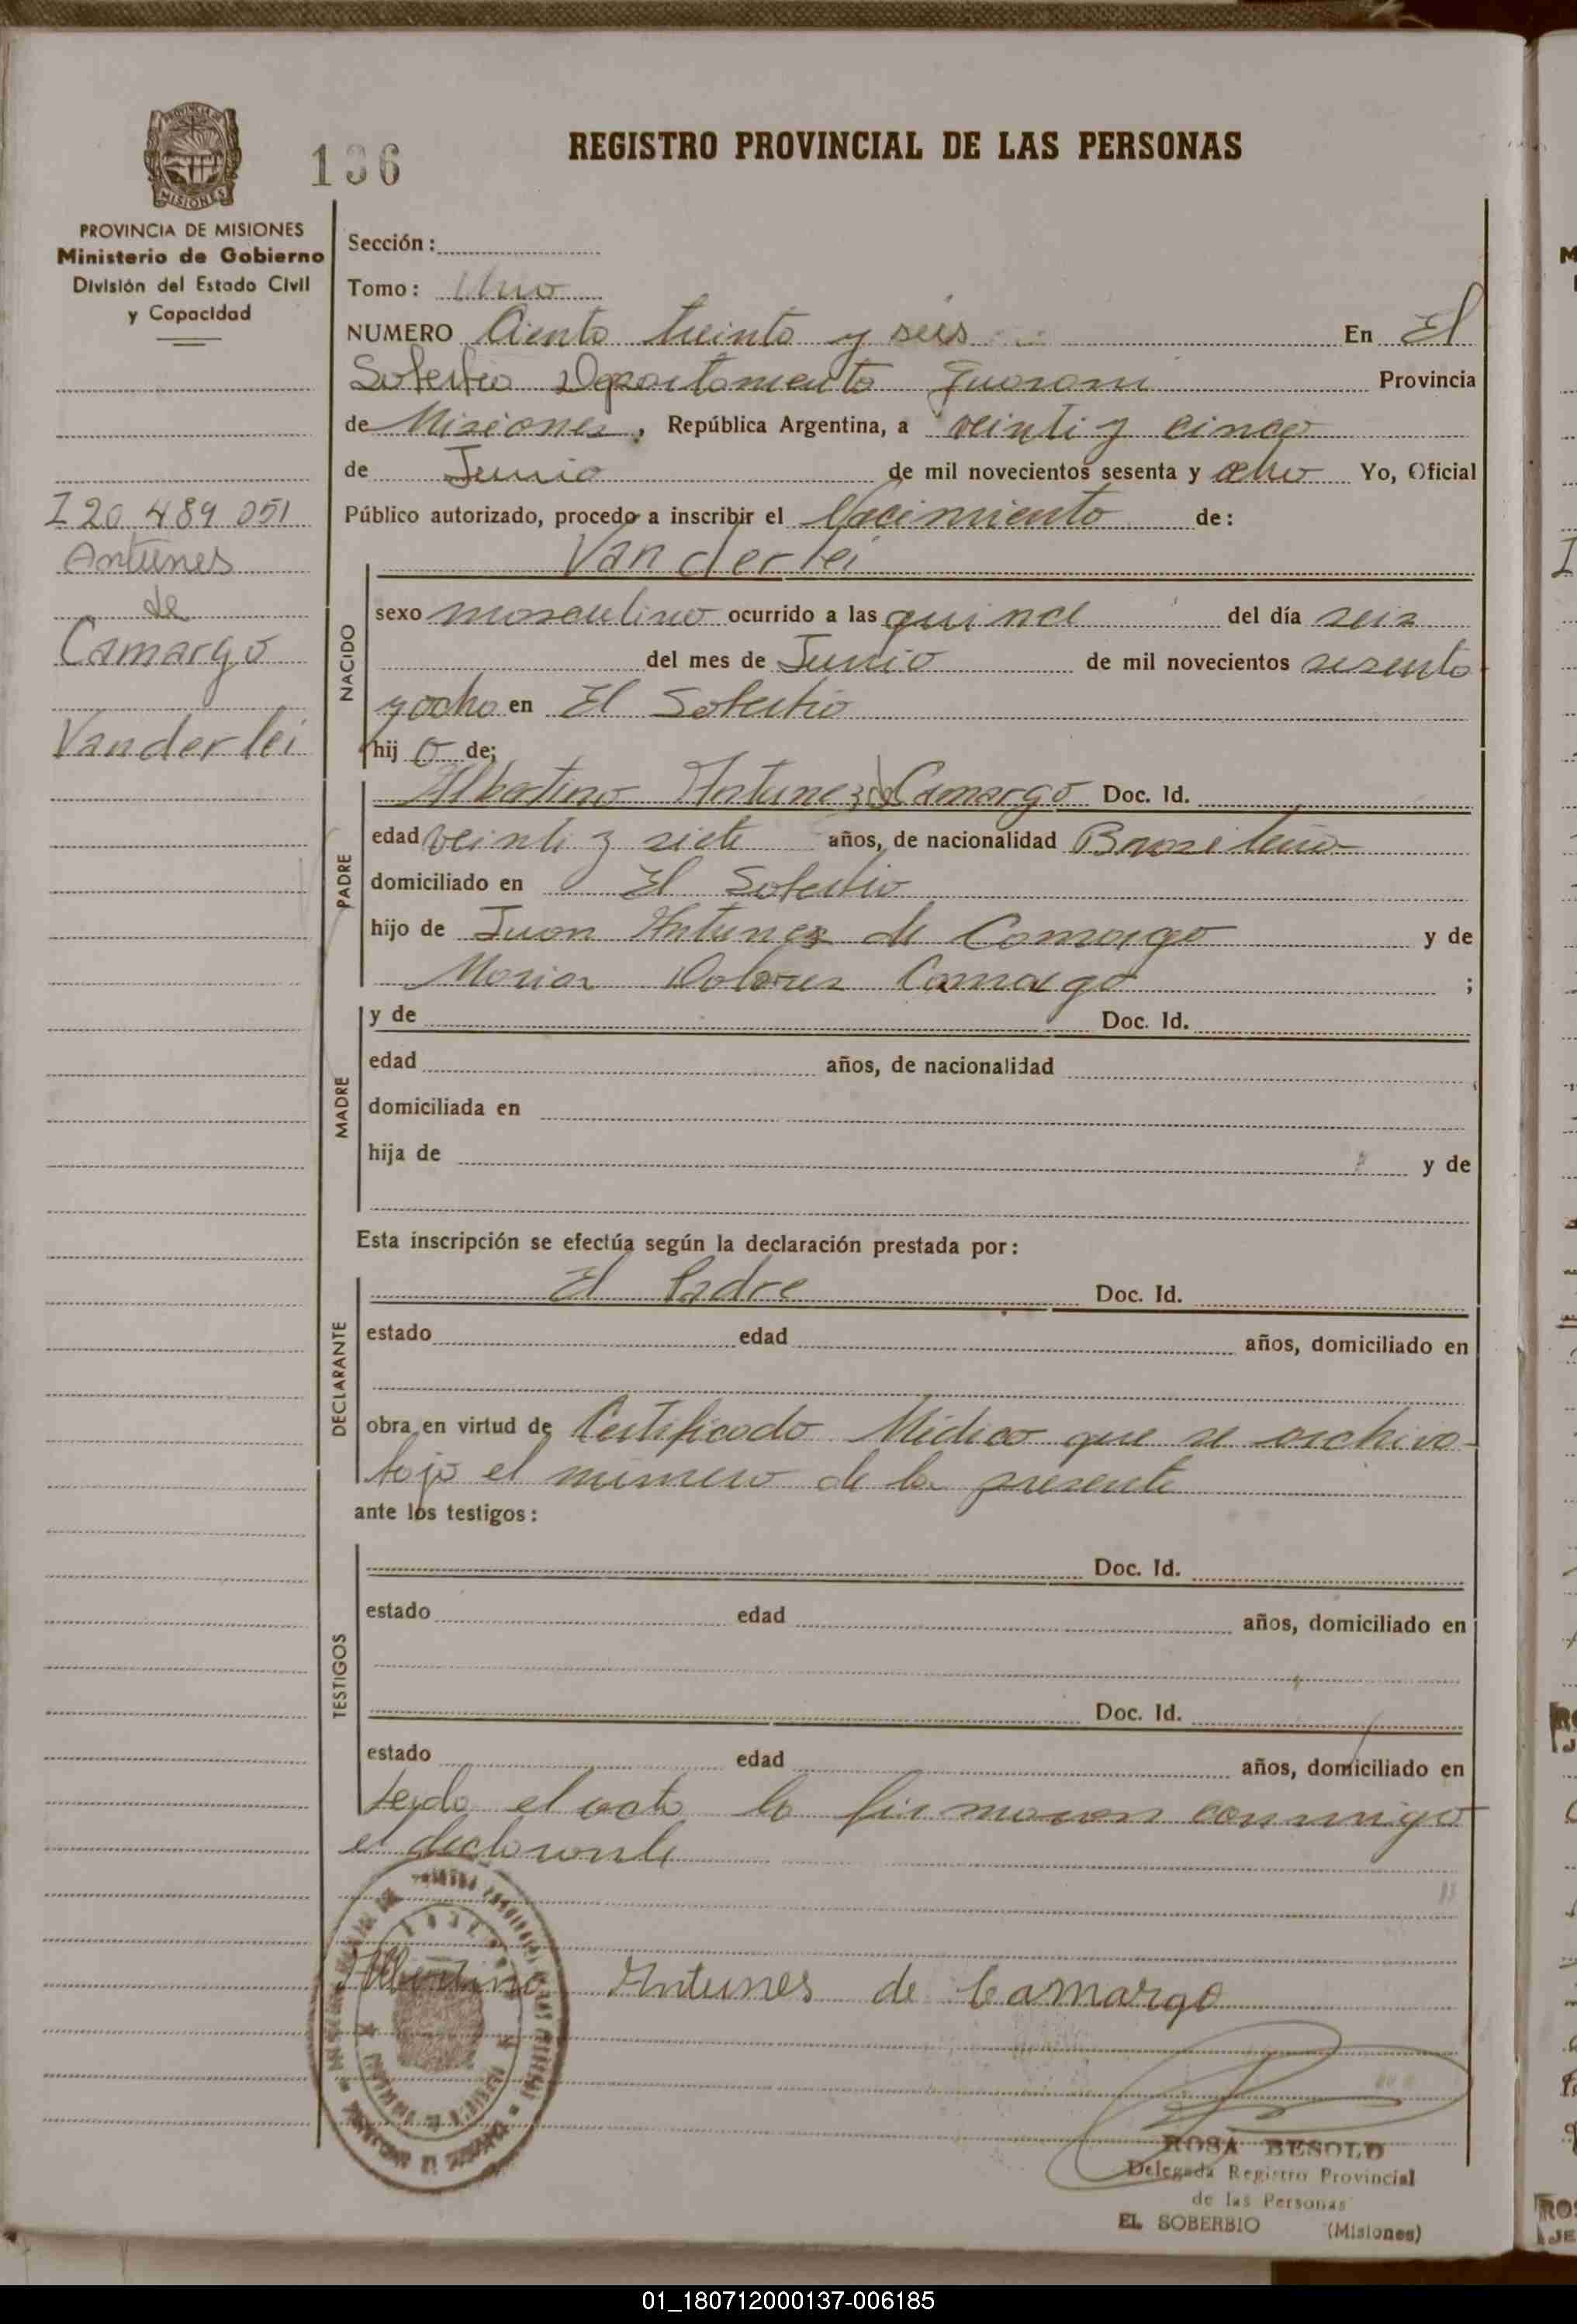 136
REGISTRO PROVINCIAL DE LAS PERSONAS
PROVINCIA DE MISIONES
Ministerio de Gobierno
División del Estado Civil
y Capacidad
I 20 489 051
Antunes
de
Camargo
Vanderlei
Sección:
Tomo: Uno
NUMERO Ciento treinta y seis En El
Soberbio Departamento Guarani Provincia
de Misiones, República Argentina, a veinti y cinco
de Junio de mil novecientos sesenta y ocho Yo, Oficial
Público autorizado, procedo a inscribir el Nacimiento de:
Vanderlei
NACIDO
sexo masculino ocurrido a las quince del día seis
del mes de Junio de mil novecientos sesenta
y ocho en El Soberbio
hijo de;
Albertino Antunez de Camargo Doc. Id.
PADRE
edad veinti y siete años, de nacionalidad Brasileño
domiciliado en El Soberbio
hijo de Juan Antunes de Camargo y de
Maria Dolores Camargo ;
MADRE
y de Doc. Id.
edad años, de nacionalidad
domiciliada en
hija de y de
Esta inscripción se efectúa según la declaración prestada por:
DECLARANTE
El Padre Doc. Id.
estado edad años, domiciliado en
obra en virtud de Certificado Médico que se archiva
bajo el numero de la presente
ante los testigos:
TESTIGOS
Doc. Id.
estado edad años, domiciliado en
Doc. Id.
estado edad años, domiciliado en
Leida el acta la firmaron conmigo
el declarante
Albertino Antunes de Camargo
ROSA BESOLD
Delegada Registro Provincial
de las Personas
EL SOBERBIO (Misiones)
01_180712000137-006185